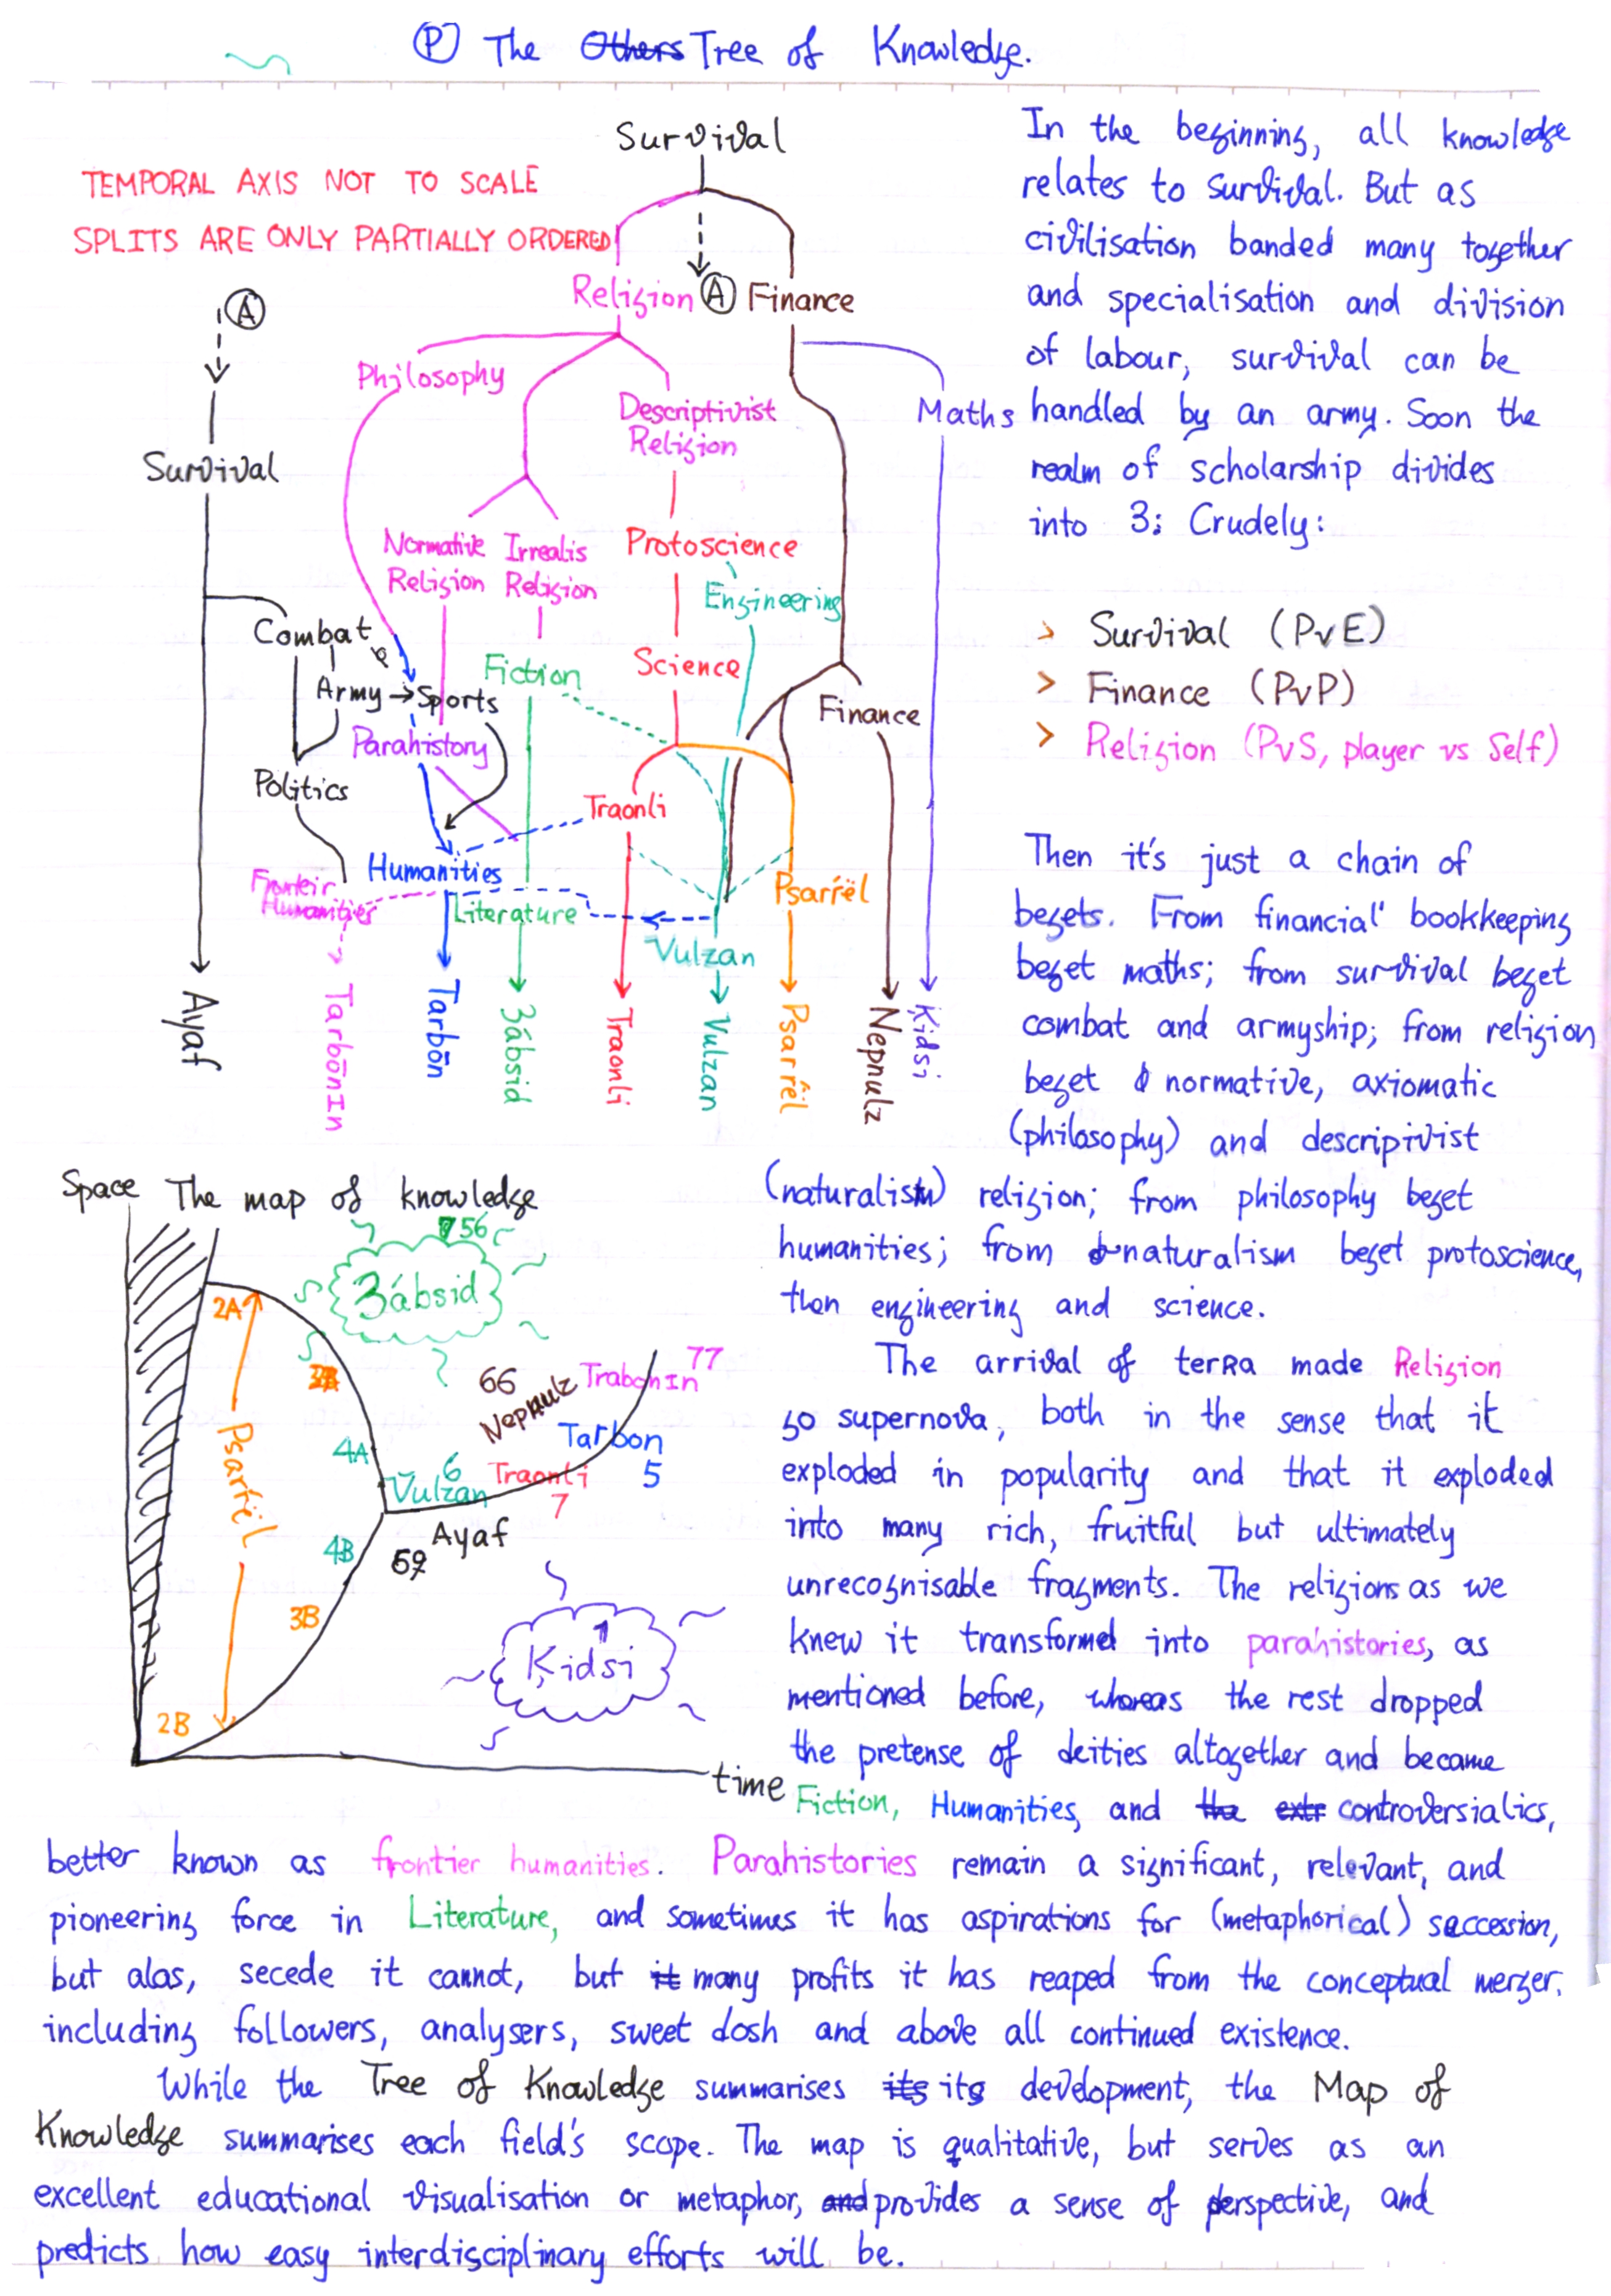 Ⓟ The Others Tree of Knowledge.
TEMPORAL AXIS NOT TO SCALE
SPLITS ARE ONLY PARTIALLY ORDERED
Survival
Religion Ⓐ Finance
Ⓐ
Philosophy
Descriptivist
Religion
Maths
Survival
Normative Irrealis
Religion Religion
Protoscience
Engineering
Combat
Fiction
Science
Army → Sports
Finance
Parahistory
Politics
Traonli
Humanities
Fronteir
Humanities
Literature
Psarrël
Vulzan
Ayaf
TarbōnIn
Tarbōn
3ábsid
Traonli
Vulzan
Psarrêl
Nepnulz
Ķidsi
In the beginning, all knowledge
relates to survival. But as
civilisation banded many together
and specialisation and division
of labour, survival can be
handled by an army. Soon the
realm of scholarship divides
into 3: Crudely:
> Survival (PvE)
> Finance (PvP)
> Religion (PvS, player vs Self)
Then it's just a chain of
begets. From financial bookkeeping
beget maths; from survival beget
combat and armyship; from religion
beget normative, axiomatic
(philosophy) and descripivist
(naturalism) religion; from philosophy beget
humanities; from naturalism beget protoscience,
then engineering and science.
The arrival of terRa made Religion
go supernova, both in the sense that it
exploded in popularity and that it exploded
into many rich, fruitful but ultimately
unrecognisable fragments. The religions as we
knew it transformed into parahistories, as
mentioned before, whereas the rest dropped
the pretense of deities altogether and became
Fiction, Humanities, and the extr controversialics,
better known as frontier humanities. Parahistories remain a significant, relevant, and
pioneering force in Literature, and sometimes it has aspirations for (metaphorical) seccession,
but alas, secede it cannot, but it many profits it has reaped from the conceptual merger,
including followers, analysers, sweet dosh and above all continued existence.
While the Tree of Knowledge summarises its its development, the Map of
Knowledge summarises each field's scope. The map is qualitative, but serves as an
excellent educational visualisation or metaphor, and provides a sense of perspective, and
predicts how easy interdisciplinary efforts will be.
Space The map of knowledge
56
3ábsid
2A
66
Nepnulz
TrabonIn 77
4A
Tarbon
5
Vulzan 6
Traonli
7
Psarrël
Ayaf
4B
3B
1
Ķidsi
2B
time